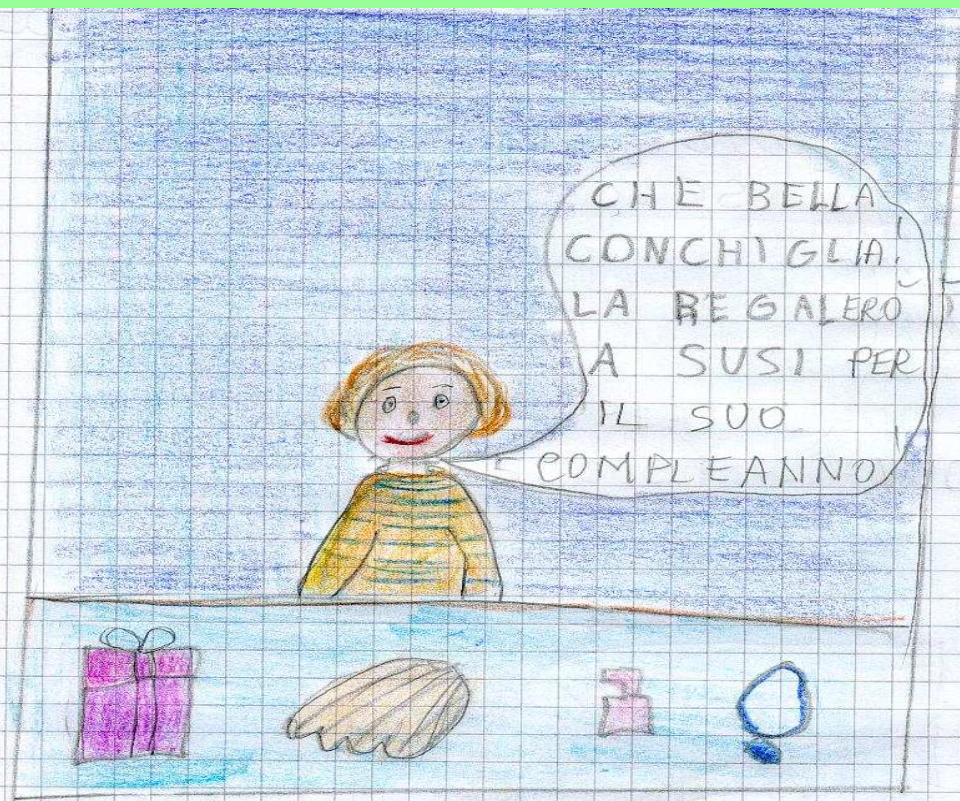 CHE BELLA
CONCHIGLIA!
LA REGALERÒ
A SUSI PER
IL SUO
COMPLEANNO!